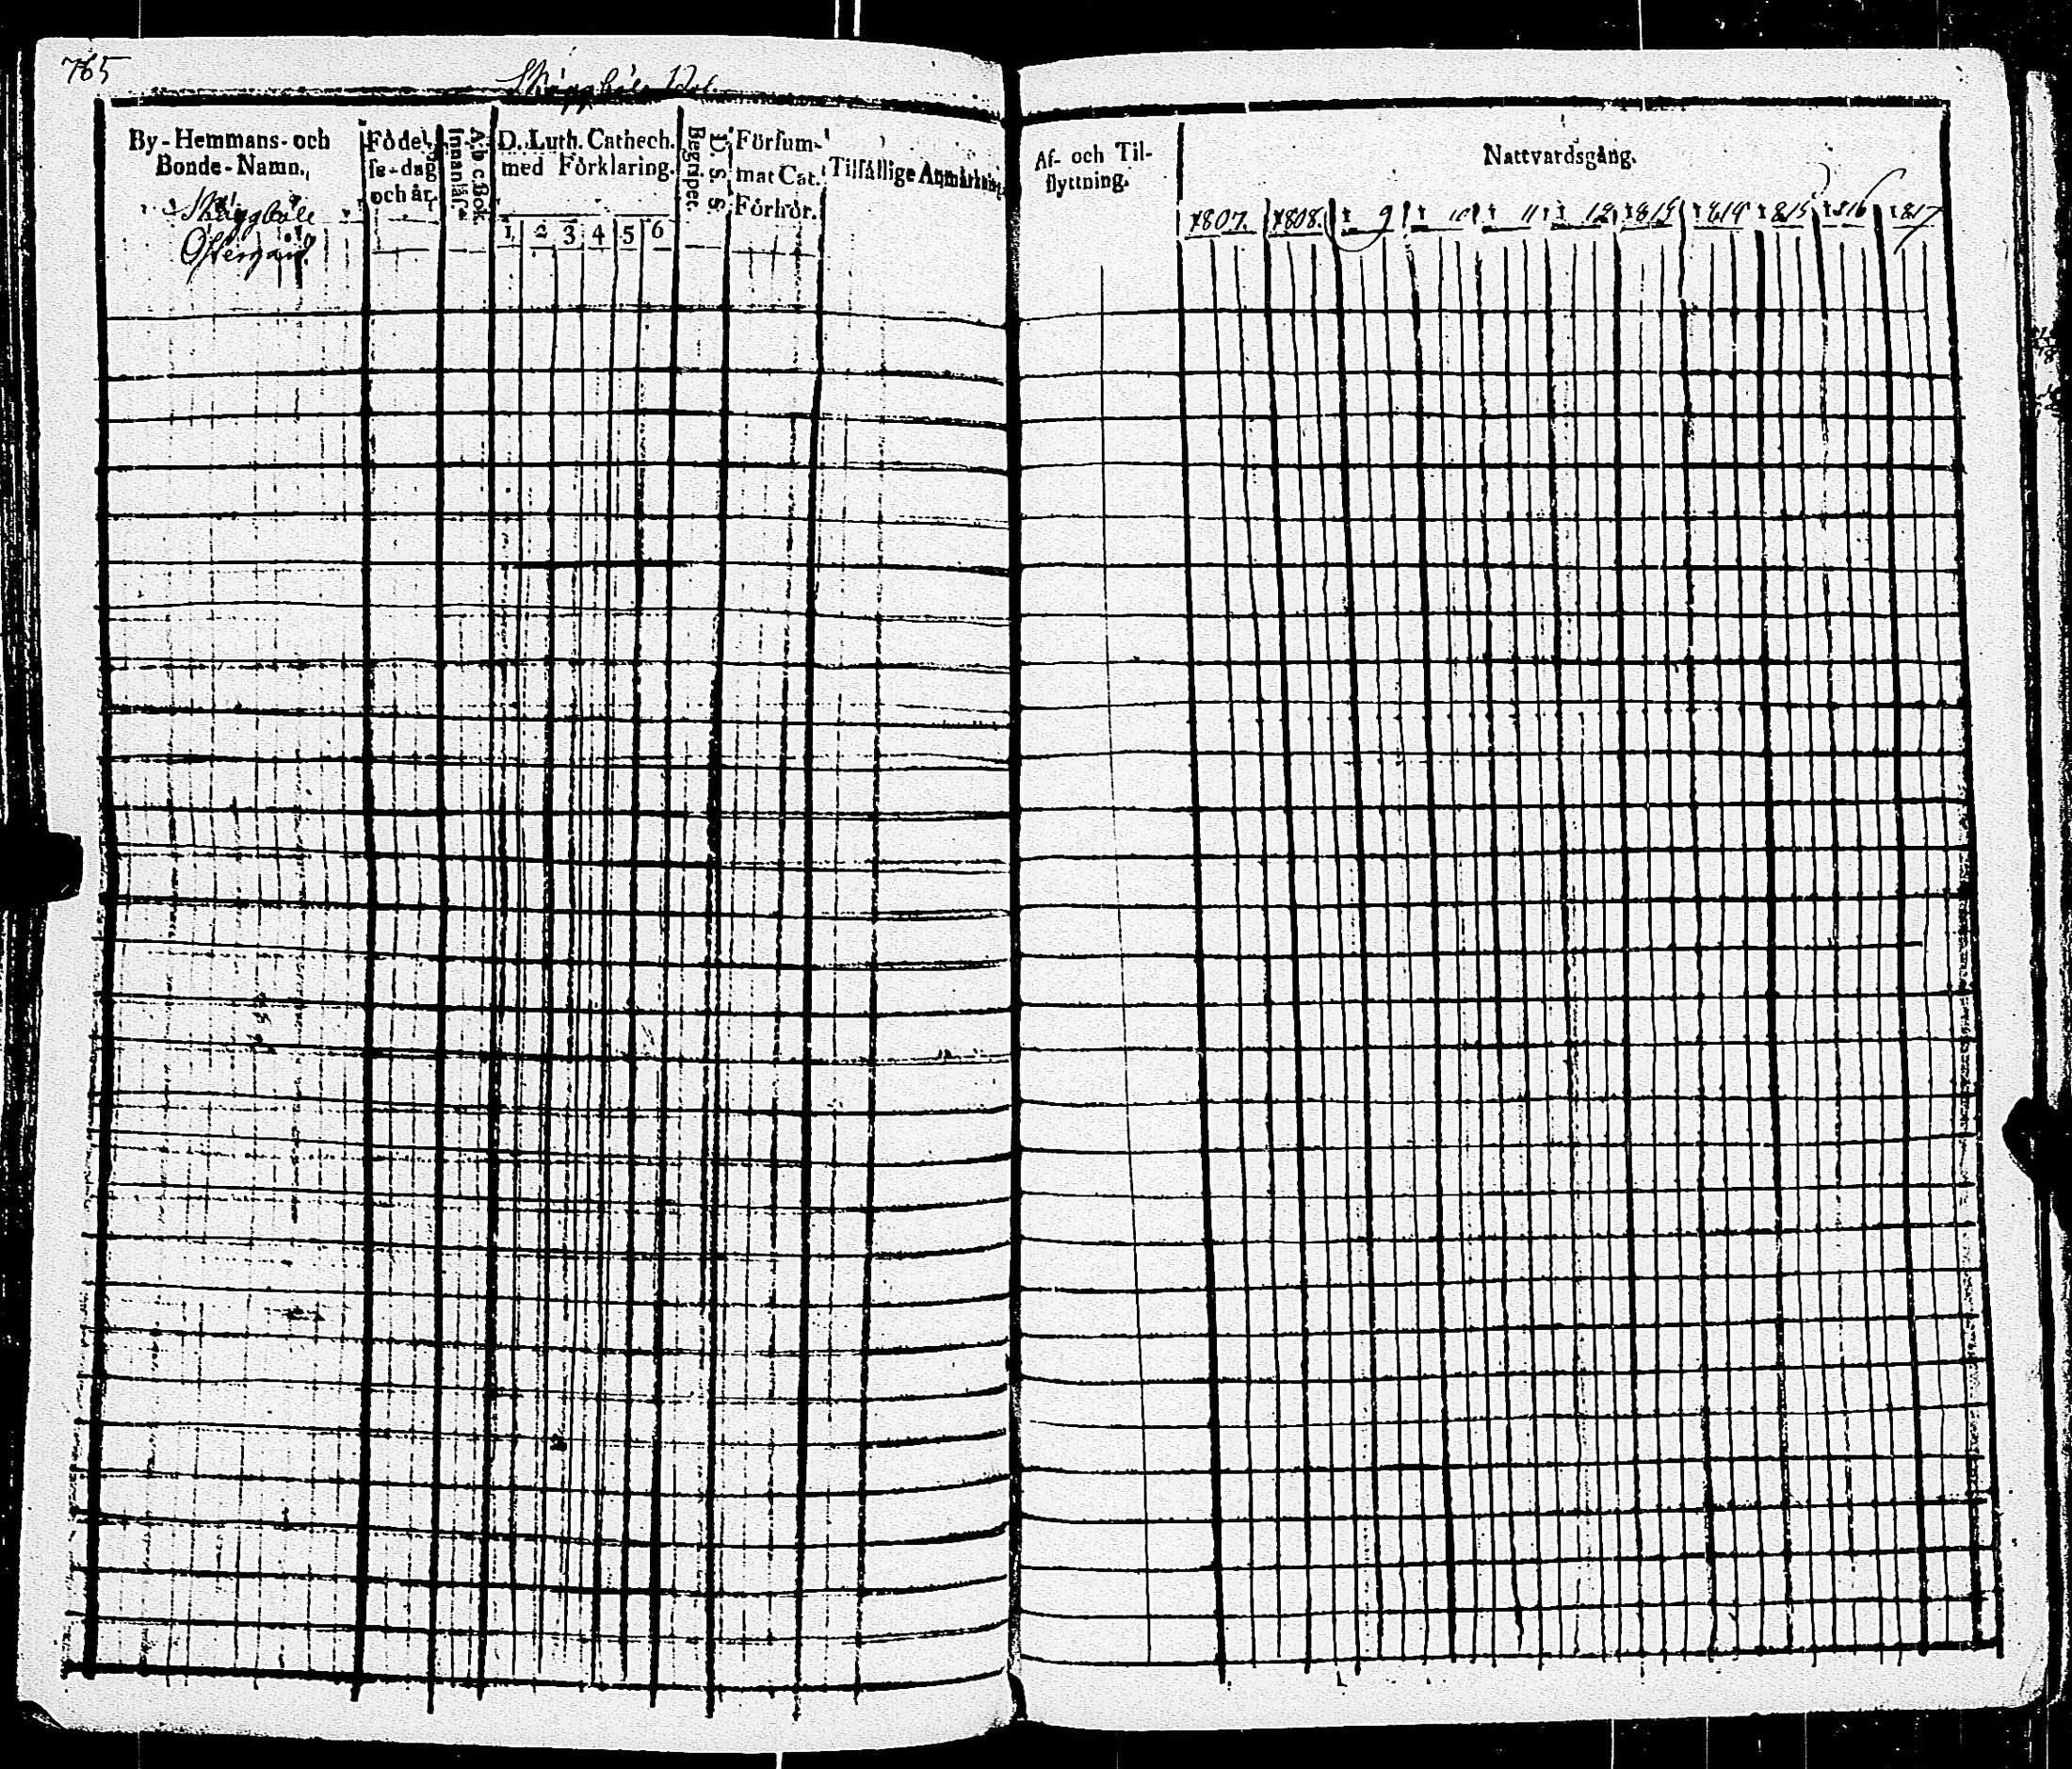 765
Skäggböle
By-Hemmans- och
Bonde-Namn.
Skäggböle
Östergård
Födel-
se-dag
och år.
A. b c. Bok.
Innanläs.
D. Luth. Cathech.
med Förklaring.
1 2 3 4 5 6
Begripet.
D. S. S.
Försum-
mat Cat.
Förhör.
Tilfällige Anmärkning.
Af- och Til-
flyttning.
Nattvardsgång.
1807. 1808. 1 9 1 10 1 11 1 12 1813 1814 1815 1816 1817